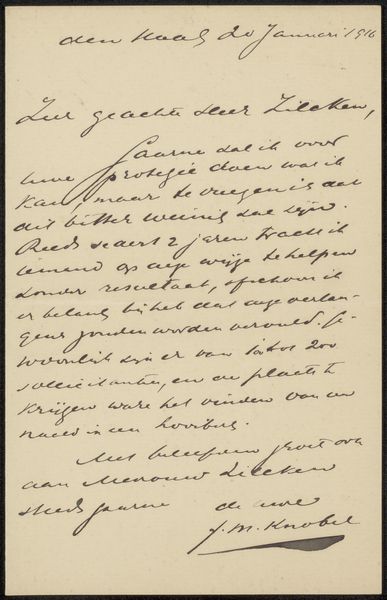 den Haag 20 Januari 1916
Zeer geachte Heer Zilcken,
Gaarne zal ik voor
uwe protegée doen wat ik
kan, maar te vreezen is dat
dit bitter weinig zal zijn.
Reeds sedert 2 jaren tracht ik
iemand op wijze te helpen
zonder resultaat, ofschoon ik
er belang bij heb dat verlan-
gens zouden worden vervuld. Ge-
woonlijk zijn er van 100 tot 200
sollicitanten, en de plaats te
krijgen ware het vinden van een
naald in een hooiberg.
Met beleefden groet ook
aan Mevrouw Zilcken
steeds gaarne de uwe
J. M. Knobel